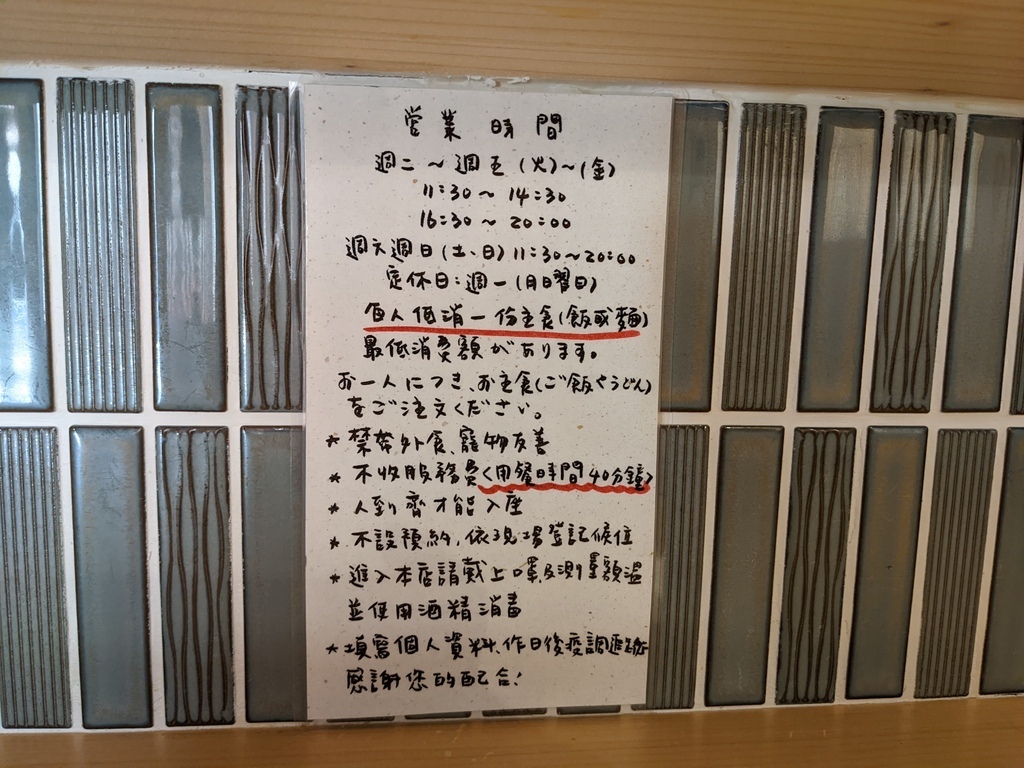 営業時間
週二～週五(火)～(金)
11:30～14:30
16:30～20:00
週六週日(土、日)11:30～20:00
定休日:週一(月曜日)
每人低消一份主食(飯或麵)
最低消費額があります。
お一人につき、お主食(ご飯やうどん)
をご注文ください。
*禁帶外食、寵物友善
*不收服務費<用餐時間40分鐘>
*人到齊才能入座
*不設預約,依現場登記候位
*進入本店請戴上口罩及測量額溫
並使用酒精消毒
*填寫個人資料,作日後疫調追蹤
感謝您的配合!